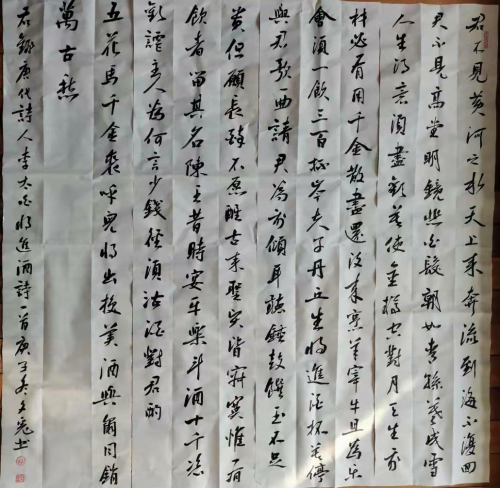 君不見黃河之水天上來奔流到海不復回
君不見高堂明鏡悲白髮朝如青絲暮成雪
人生得意須盡歡莫使金樽空對月天生我
材必有用千金散盡還復來烹羊宰牛且為樂
會須一飲三百杯岑夫子丹丘生將進酒杯莫停
與君歌一曲請君為我傾耳聽鐘鼓饌玉不足
貴但願長醉不愿醒古來聖賢皆寂寞惟有
飲者留其名陳王昔時宴平樂斗酒十千恣
歡謔主人為何言少錢徑須沽酒對君酌
五花馬千金裘呼兒將出換美酒與爾同銷
萬古愁
右錄唐代詩人李太白將進酒詩一首庚子冬文光书